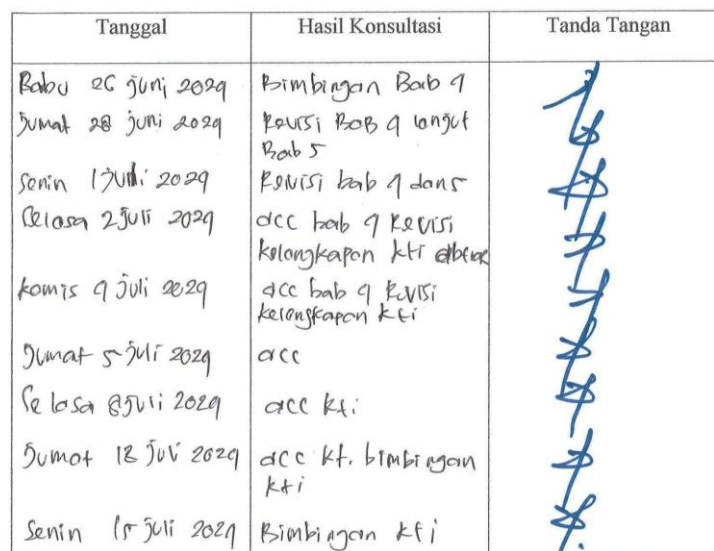 Tanggal Hasil Konsultasi Tanda Tangan
Rabu 26 juni 2024 Bimbingan Bab 4
Jumat 28 juni 2024 Revisi BAB 4 lanjut
Bab 5
Senin 1 Juli 2024 Revisi bab 4 dan 5
Selasa 2 Juli 2024 acc bab 4 Revisi
kelengkapan kti
kamis 4 Juli 2024 acc bab 4 Revisi
kelengkapan kti
Jumat 5 juli 2024 acc
Selasa 8 Juli 2024 acc kti
Jumat Juli 2024 acc kti bimbingan
kti
Senin 15 juli 2024 Bimbingan kti